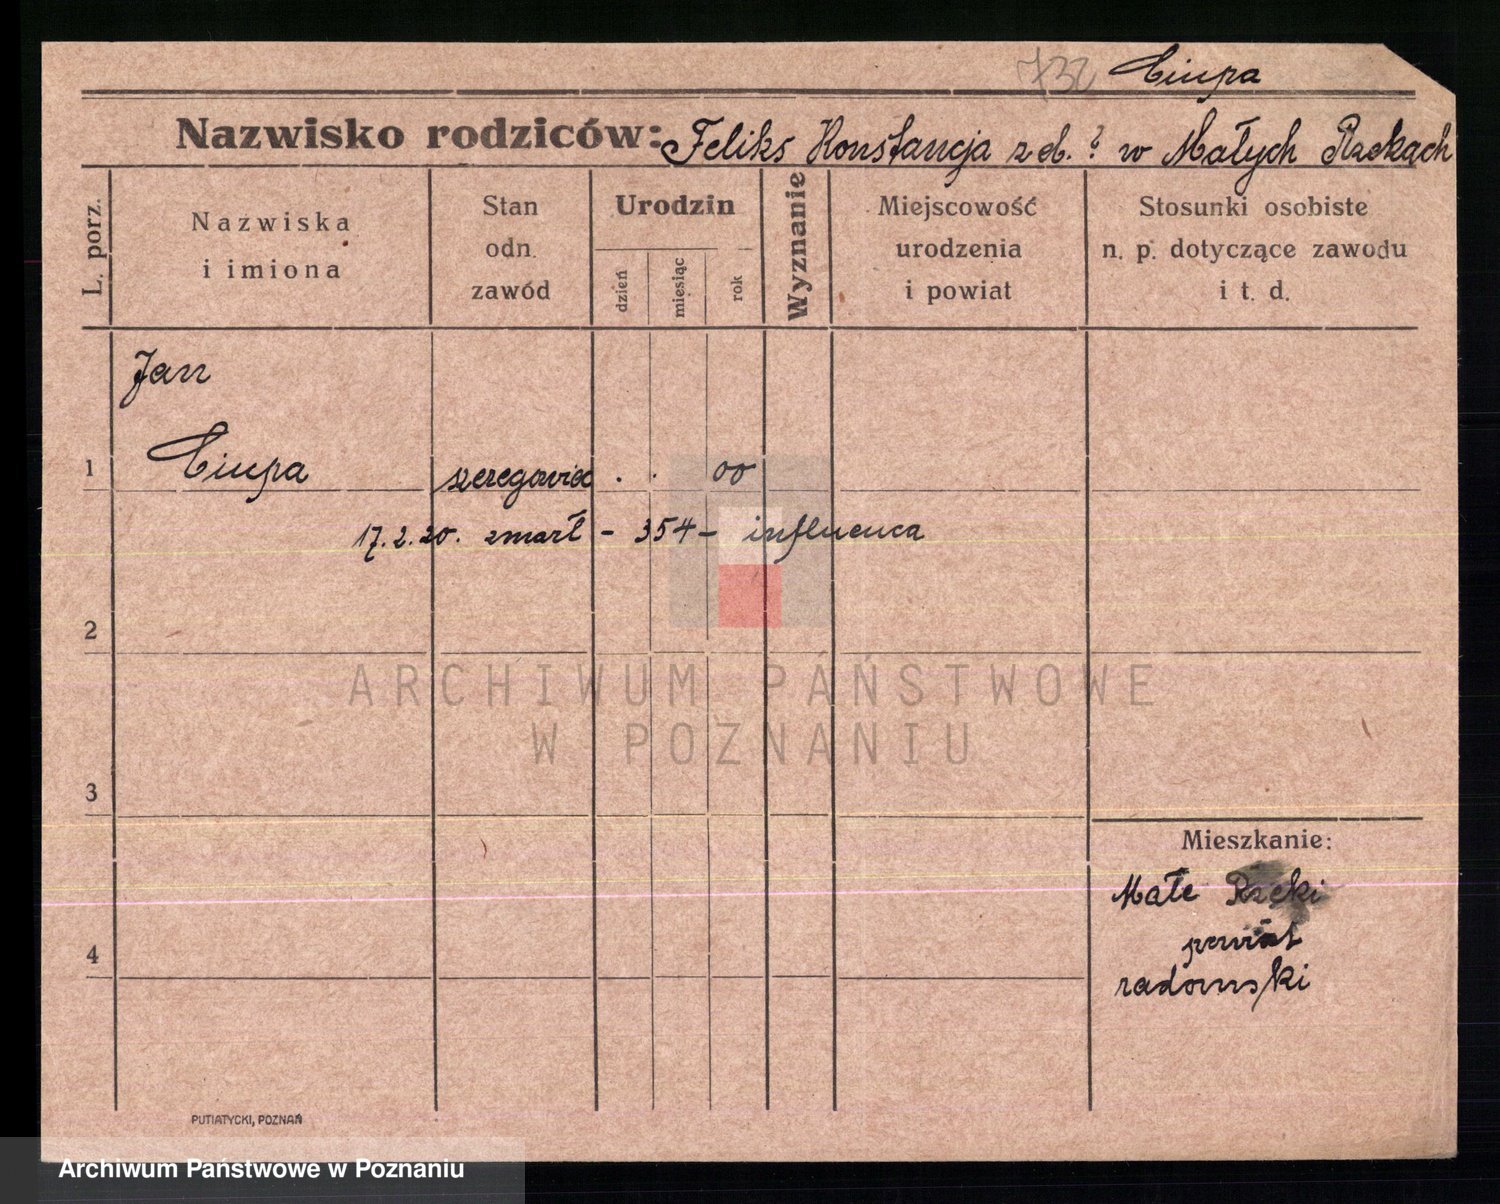 732 Ciupa
Nazwisko rodziców: Feliks Konstancja z d. ? w Małych Rzekach
L. porz.
Nazwiska
i imiona
Stan
odn.
zawód
Urodzin
dzień
miesiąc
rok
Wyznanie
Miejscowość
urodzenia
i powiat
Stosunki osobiste
n. p. dotyczące zawodu
i t. d.
Jan
1 Ciupa szeregowiec . . 00
17.2.20. zmarł - 354 - influenca
2
ARCHIWUM PAŃSTWOWE
W POZNANIU
3
Mieszkanie:
Małe Rzeki
4 powiat
radomski
PUTIATYCKI, POZNAŃ
Archiwum Państwowe w Poznaniu